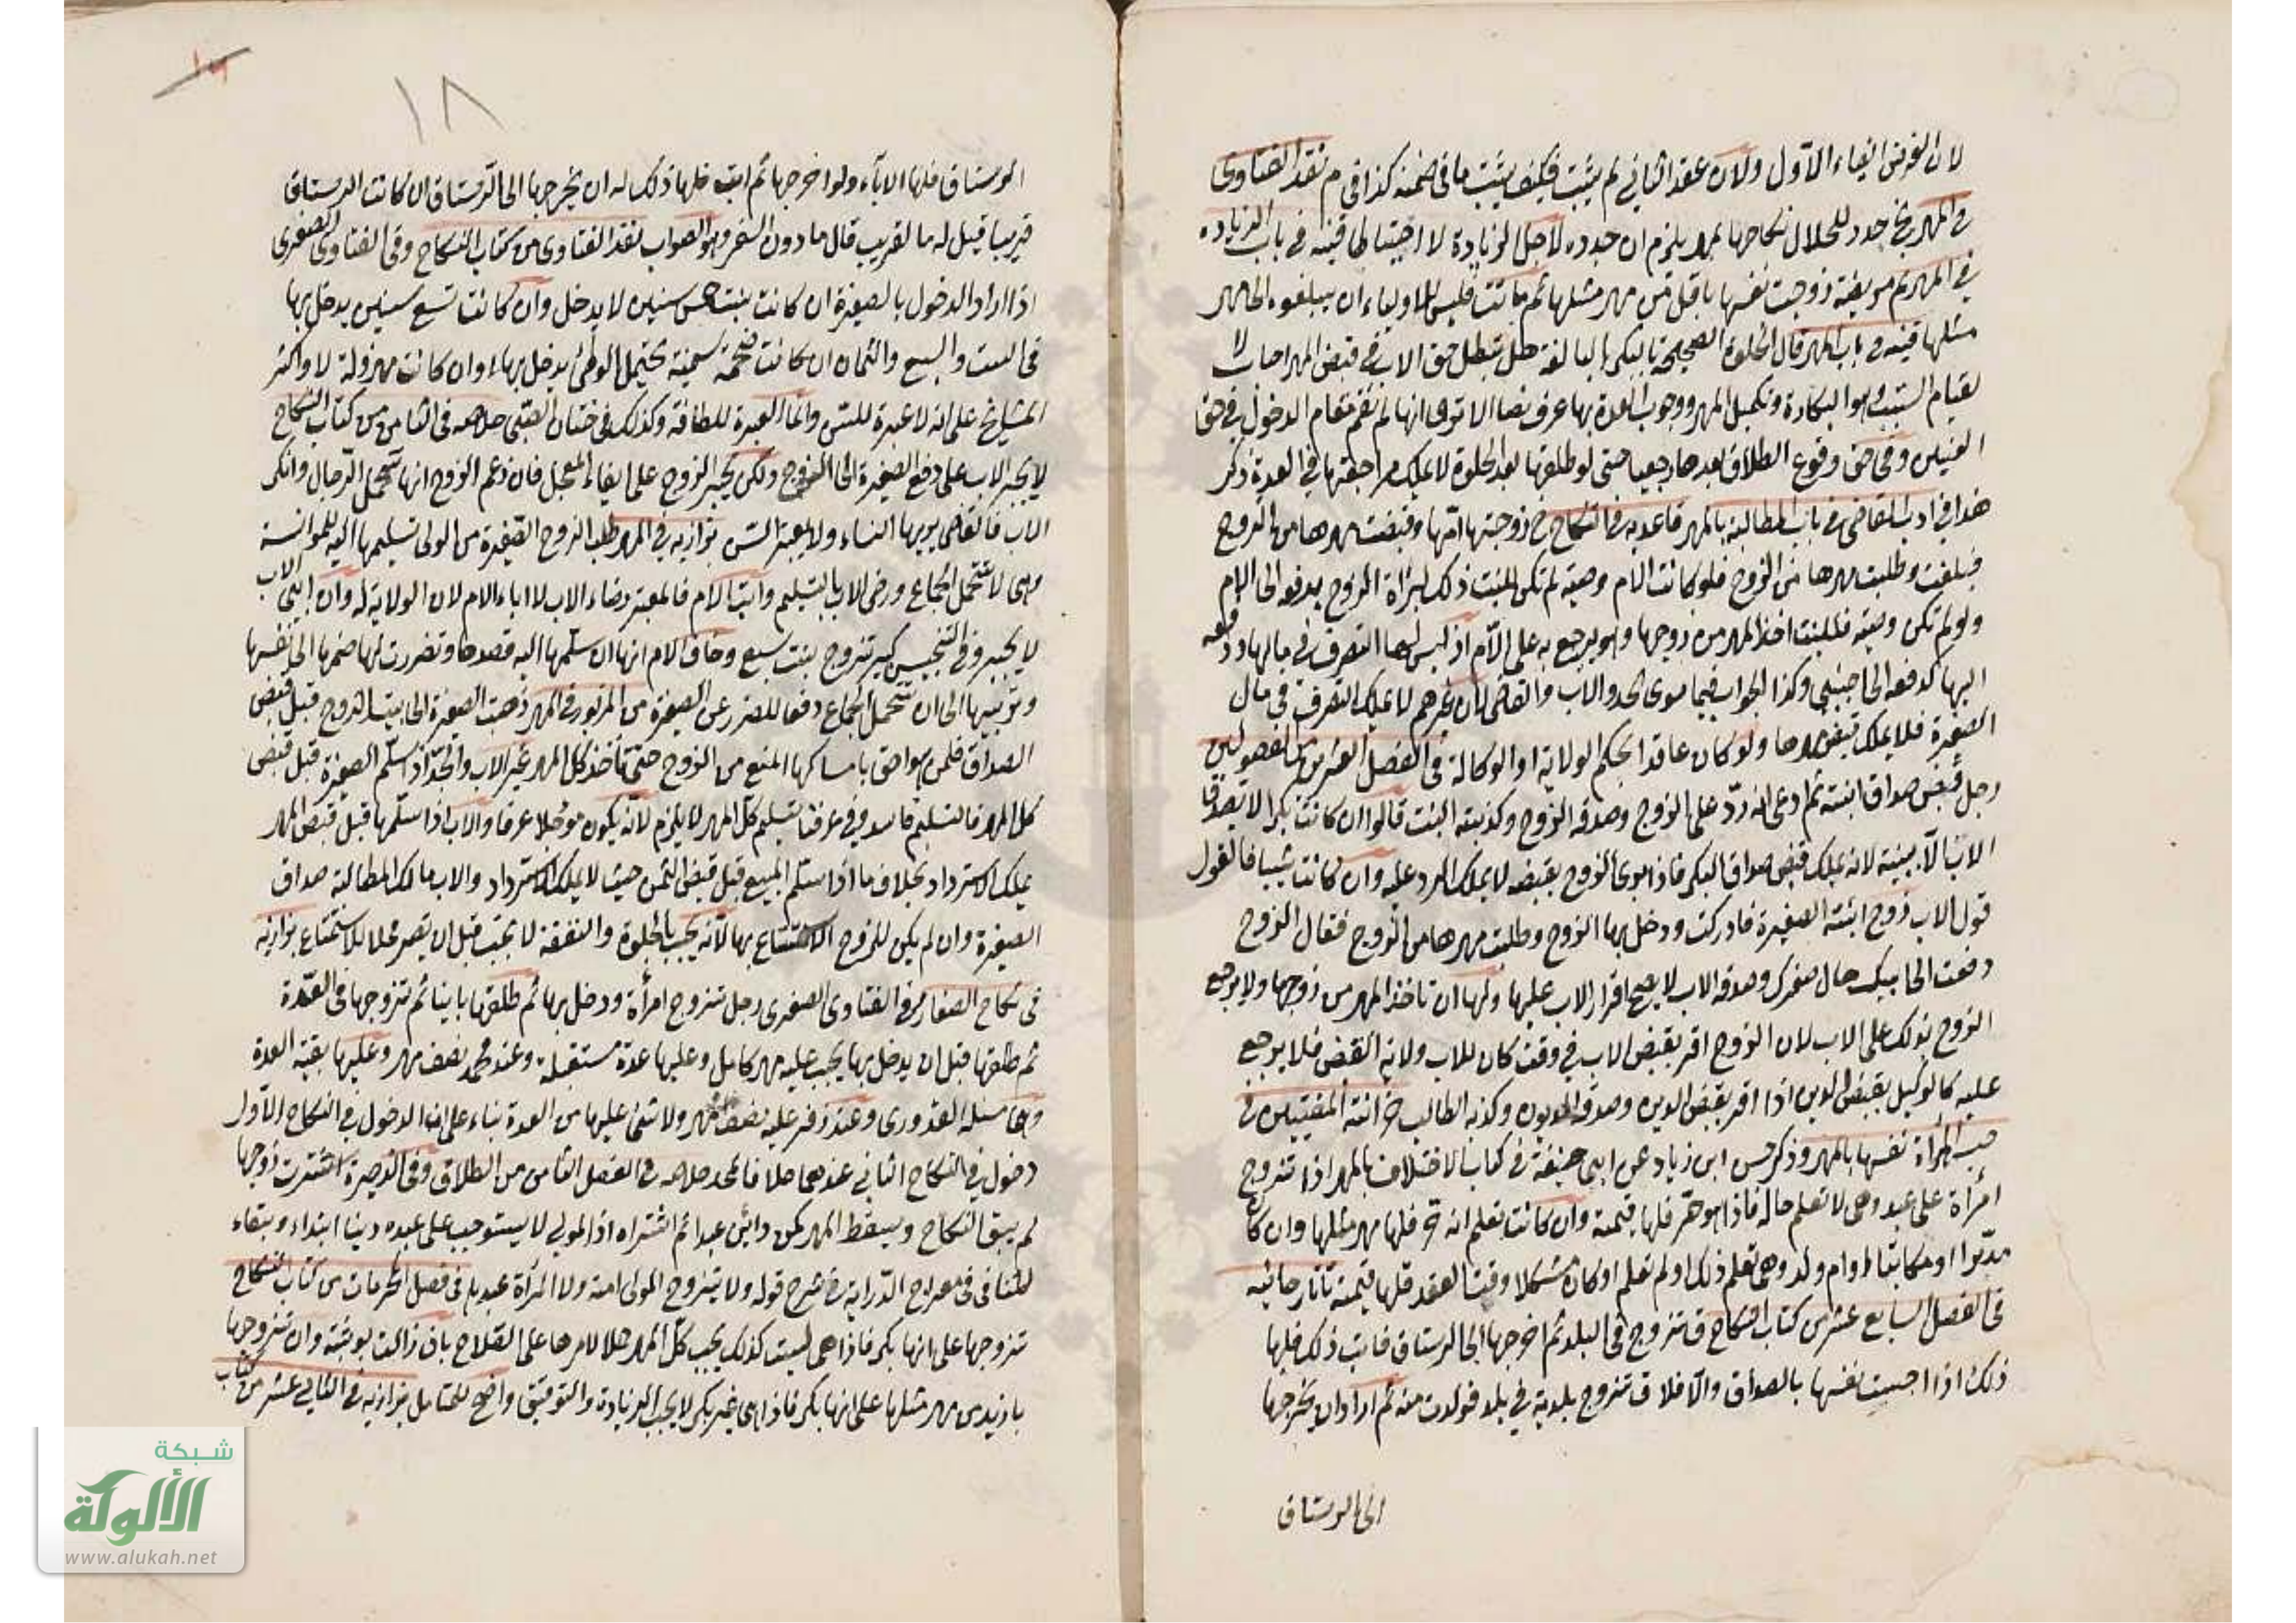 لان الغرض ابقاء الاول ولان عقد الثاني لم يثبت فكيف يثبت ما في ضمنه كذا في م نقد الفتاوى
في المهر خ جدد للحلال نكاحها بمهر يلزم ان جدده لاجل الزيادة لا احتياطا قنية في باب الزيادة
في المهر ثم مريضة زوجت نفسها باقل من مهر مثلها ثم ماتت فليس للاولياء ان يبلغوه الى مهر
مثلها قنية في باب المهر قال الخلوة الصحيحة بالبكر البالغة هل تبطل حق الاب في قبض المهر اجاب لا
لقيام السبب وهو البكارة وتكميل المهر ووجوب العدة بها عرف نصا الا ترى انها لم تقم مقام الدخول في حق
الغير وفي حق وقوع الطلاق بعدها رجعيا حتى لو طلقها بعد الخلوة لا يملك مراجعتها في العدة ذكر
هذا في ادب القاضي في باب المطالبة بالمهر قاعدية في النكاح خ زوجتها امها وقبضت مهرها من الزوج
فبلغت وطلبت مهرها من الزوج فلو كانت الام وصية لم تكن للبنت ذلك لبراة الزوج بدفعه الى الام
ولو لم تكن وصية فللبنت اخذ المهر من زوجها وهو يرجع به على الام اذ ليس لها التصرف في مالها ودفعه
اليها كدفعه الى اجنبي وكذا الجواب فيما سوى الجد والاب والقاضي لان غيرهم لا يملك التصرف في مال
الصغيرة فلا يملك قبض مهرها ولو كان عاقدا بحكم الولاية او الوكالة في الفصل العشرين من الفصولين
رجل قبض صداق ابنته ثم ادعى انه رد على الزوج وصدقه الزوج وكذبته البنت قالوا ان كانت بكرا لا يصدق
الاب الا ببينة لانه يملك قبض صداق البكر فاذا برئ الزوج بقبضه لا يملك الرد عليه وان كانت ثيبا فالقول
قول الاب زوج ابنته الصغيرة فادركت ودخل بها الزوج وطلبت مهرها من الزوج فقال الزوج
دفعت الى ابيك حال صغرك وصدقه الاب لا يصح اقرار الاب عليها ولها ان تاخذ المهر من زوجها ولا يرجع
الزوج بذلك على الاب لان الزوج اقر بقبض الاب في وقت كان للاب ولاية القبض فلا يرجع
عليه كالوكيل بقبض الدين اذا اقر بقبض الدين وصدقه المديون وكذبه الطالب خزانة المفتيين في
حبس المرأة نفسها بالمهر وذكر حسن ابن زياد عن ابي حنيفة في كتاب الاختلاف بالمهر اذا تزوج
امرأة على عبد وهي لا تعلم حاله فاذا هو حر فلها قيمته وان كانت تعلم انه حر فلها مهر مثلها وان كان
مدبرا او مكاتبا او ام ولد وهي تعلم ذلك او لم تعلم او كان مشكلا وقت العقد فلها قيمته تاتارخانيه
في الفصل السابع عشر من كتاب النكاح ق تزوج في البلد ثم اخرجها الى الرستاق فابت ذلك فلها
ذلك اذا احبست نفسها بالصداق والا فلا ق تزوج بلدية في بلد فولدت منه ثم اراد ان يخرجها
الى الرستاق
١٨
الرستاق فلها الاباء ولو اخرجها ثم ابت فلها ذلك له ان يخرجها الى الرستاق ان كانت الرستاق
قريبا قيل له ما القريب قال ما دون السفر وهو الصواب نقد الفتاوى من كتاب النكاح وفي الفتاوى الصغرى
اذا اراد الدخول بالصغيرة ان كانت بنت خمس سنين لا يدخل وان كانت تسع سنين يدخل بها
في الست والسبع والثمان ان كانت ضخمة سمينة تحتمل الوطئ يدخل بها وان كانت مهزولة لا واكثر
المشايخ على انه لا عبرة للسن وانما العبرة للطاقة وكذلك في ختان الصبي خلاصه في الثامن من كتاب النكاح
لا يجبر الاب على دفع الصغيرة الى الزوج ولكن يجبر الزوج على ايفاء المعجل فان زعم الزوج انها تتحمل الرجال وانكر
الاب فالقاضي يريها النساء ولا يعتبر السن بزازيه في المهر طلب الزوج الصغيرة من الولي تسليمها اليه للموانسة
وهي لا تتحمل الجماع ورضى الاب بالتسليم وابت الام فالمعتبر رضاء الاب لا اباء الام لان الولاية له وان ابى الاب
لا يجبر وفي التجنيس كبير تزوج بنت سبع وخاف الام انها ان سلمها اليه قصدها وتضررت لها ضمها الى نفسها
وتربيها الى ان تتحمل الجماع دفعا للضرر عن الصغيرة من المزبور في المهر ذهبت الصغيرة الى بيت الزوج قبل قبض
الصداق فلمن هو احق بامساكها المنع من الزوج حتى تأخذ كل المهر غير الاب والجد اذا سلم الصغيرة قبل قبض
كل المهر فالتسليم فاسد وفي عرفنا تسليم كل المهر لا يلزم لانه يكون مؤجلا عرفا والاب اذا سلمها قبل قبض المهر
يملك الاسترداد بخلاف ما اذا سلم المبيع قبل قبض الثمن حيث لا يملك الاسترداد والاب مالك المطالبة صداق
الصغيرة وان لم يكن للزوج الاستمتاع بها لانه يجب بالخلوة والنفقة لا تجب قبل ان يصير محلا للاستمتاع بزازيه
في نكاح الصغار في الفتاوى الصغرى رجل تزوج امرأة ودخل بها ثم طلقها باينا ثم تزوجها في العدة
ثم طلقها قبل ان يدخل بها يجب عليه مهر كامل وعليها عدة مستقبلة وعند محمد نصف مهر وعليها بقية العدة
وهي مسئلة القدوري وعند زفر عليه نصف مهر ولا شئ عليها من العدة بناء على ان الدخول في النكاح الاول
دخول في النكاح الثاني عندهما خلافا لمحمد خلاصه في الفصل الثامن من الطلاق وفي الذخيرة اشترت زوجها
لم يبق النكاح ويسقط المهر كمن داين عبدا ثم اشتراه اذ المولى لا يستوجب على عبده دينا ابتداء وبقاء
للتنافي في معراج الدراية في شرح قوله ولا يتزوج المولى امته ولا المرأة عبدها في فصل المحرمات من كتاب النكاح
تزوجها على انها بكر فاذا هي ليست كذلك يجب كل المهر حملا لامرها على الصلاح بان زالت بوثبة وان تزوجها
بازيد من مهر مثلها على انها بكر فاذا هي غير بكر لا يجب الزيادة والتوفيق واضح للمتامل بزازيه في الثاني عشر من كتاب
شبكة
الألوكة
www.alukah.net